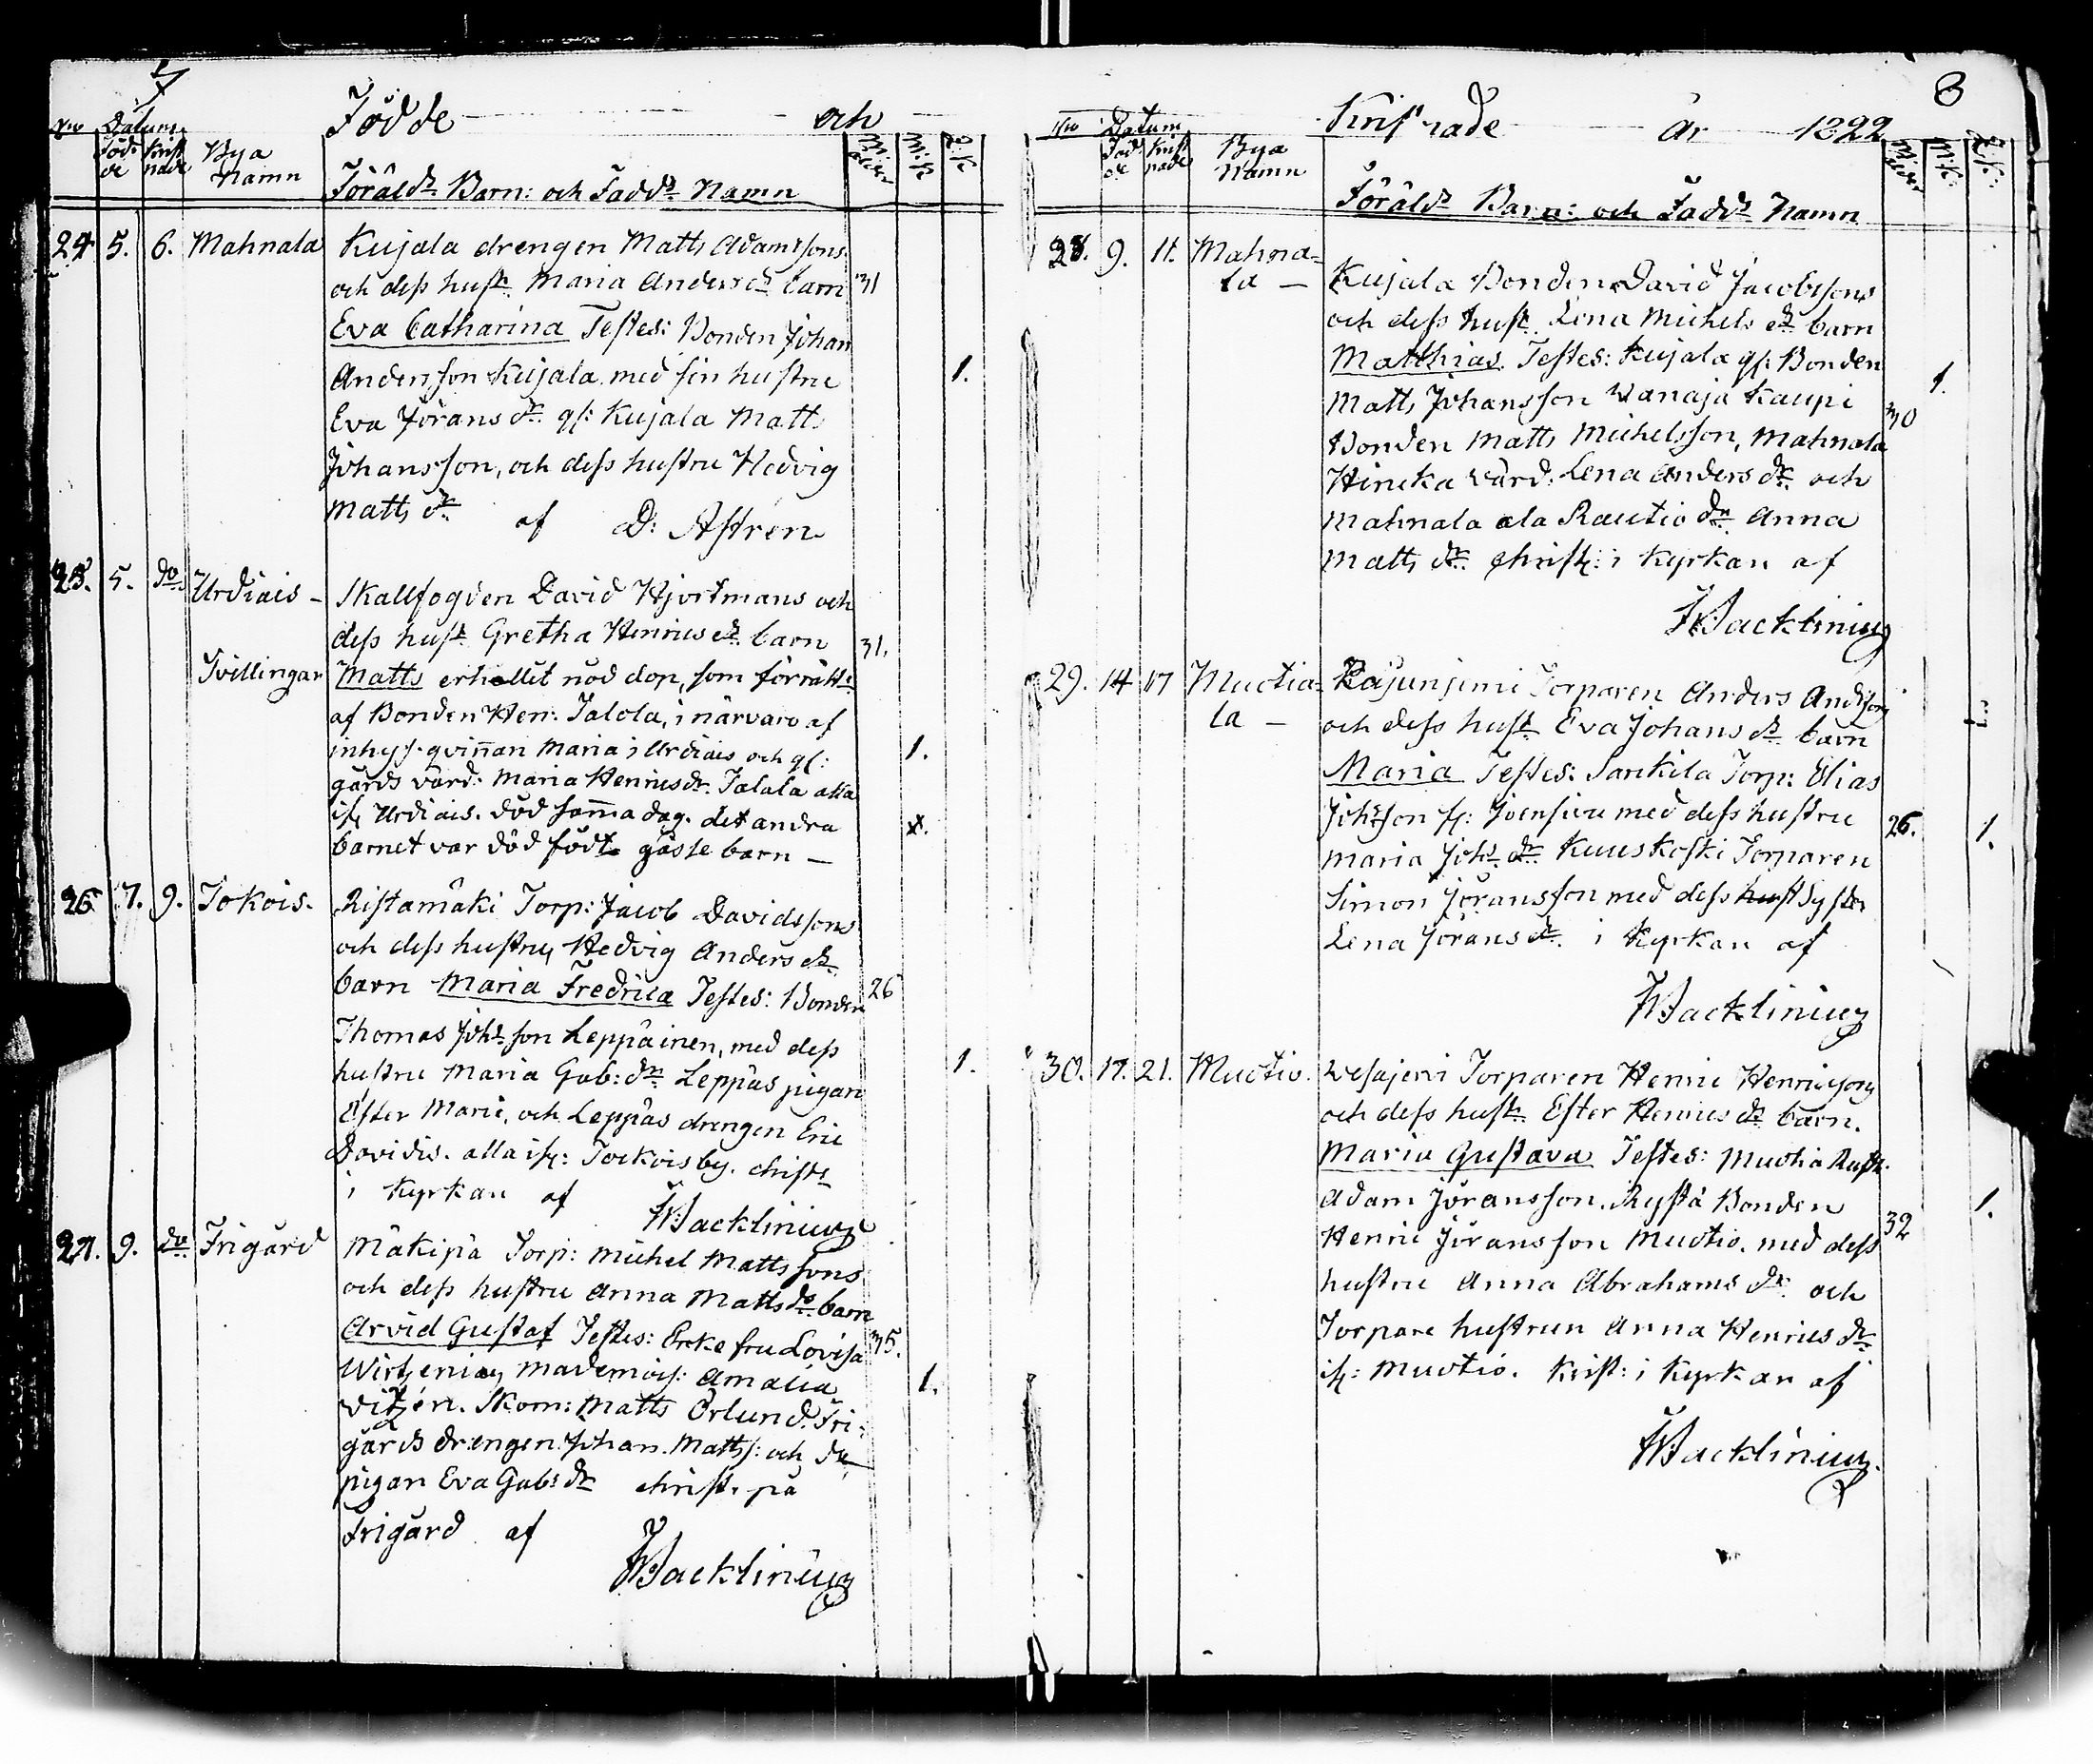 7
Födde och
No Datum
Föd: de Krist nade Bya Namn
Föräldrs Barn: och Faddrs Namn
M: ålder M:K Q:K
24 5. 6. Mahnala Kujala drengen Matts Adamssons
och dess hust. Maria Anders dr barn 31
Eva Catharina Testes: Bonden Johan
Andersson Kujala med sin hustru 1.
Eva Jörans dr. qs: Kujala Matts
Johansson, och dess hustru Hedvig
Matts dr. af D: Astren
25. 5. do Urdiais - Skallfogden David Hjortmans och
dess hust Gretha Henrics dr barn 31.
Tvillingar Matts erhållit nöd dop, som förrätts
af Bonden Hen: Talola, i närvaro af
inhys. qvinnan Maria i Urdiais och qs: 1.
gårds värd: Maria Henricsdr. Talala alla
if Urdiais. död samma dag. det andra x.
barnet var död född gåsse barn —
26 7. 9. Jokois. Ristamäki Torp: Jacob Davidssons
och dess hustru Hedvig Anders dr.
barn Maria Fredrica Testes: Bonden 26
Thomas Johsson Leppäinen, med dess
hustru Maria Gab: dr Leppäs pigan 1.
Ester Marie, och Leppäs drengen Eric
Davidis. alla if: Jockois by. christ
i Kyrkan af Wacklinius
27. 9. do Frigård Mäkipä Torp: Michel Mattssons
och dess hustru Anna Matts dr barn
Arvid Gustaf Testes: Enke fru Lovisa 35.
Wirtzenius, Mademois: Amalia 1.
Skom: Matts Örlund. Fri-
gårds drengen Johan Matts: och
pigan Eva Gabs dr christ. på
Frigård af
Wacklinius
8
Kristnade år 1822
No Datum
Föd de Krist nade Bya Namn
Föräldrs Barn: och Faddrs Namn
M: ålder M:K: Q:K:
28. 9. 11. Mahna-
la — Kujala Bonden David Jacobssons
och dess hust. Lena Michels dr barn
Matthias. Testes: Kujala qs: Bonden 1.
Matts Johansson Wanaja Kaupi 30
Bonden Matts Michelsson, Mahnala
Hineka värd: Lena Anders dr. och
Mahnala ala Rautio dr Anna
Matts dr. christ: i Kyrkan af
Wacklinius
29. 14 17 Muotia-
la — Kajunjemi Torparen Anders Andssons
och dess hust Eva Johans dr barn
Maria Testes: Sarkila Torp: Elias
Johsson if: Joensivu med dess hustru 26. 1.
Maria Johs dr Kuuskoski Torparen
Simon Jöransson med dess syster
Lena Jörans dr. i Kyrkan af
Wacklinius
30. 17. 21. Muotio. Wesajervi Torparen Henric Henricssons
och dess hust. Ester Henrics dr barn.
Maria Gustava Testes: Muotia Rusth.
Adam Jöransson. Rystä Bonden 1.
Henric Jöransson Muotio. med dess 32
hustru Anna Abrahams dr. och
Torpare hustrun Anna Henrics dr
if: Muotio. Krist: i Kyrkan af
Wacklinius.